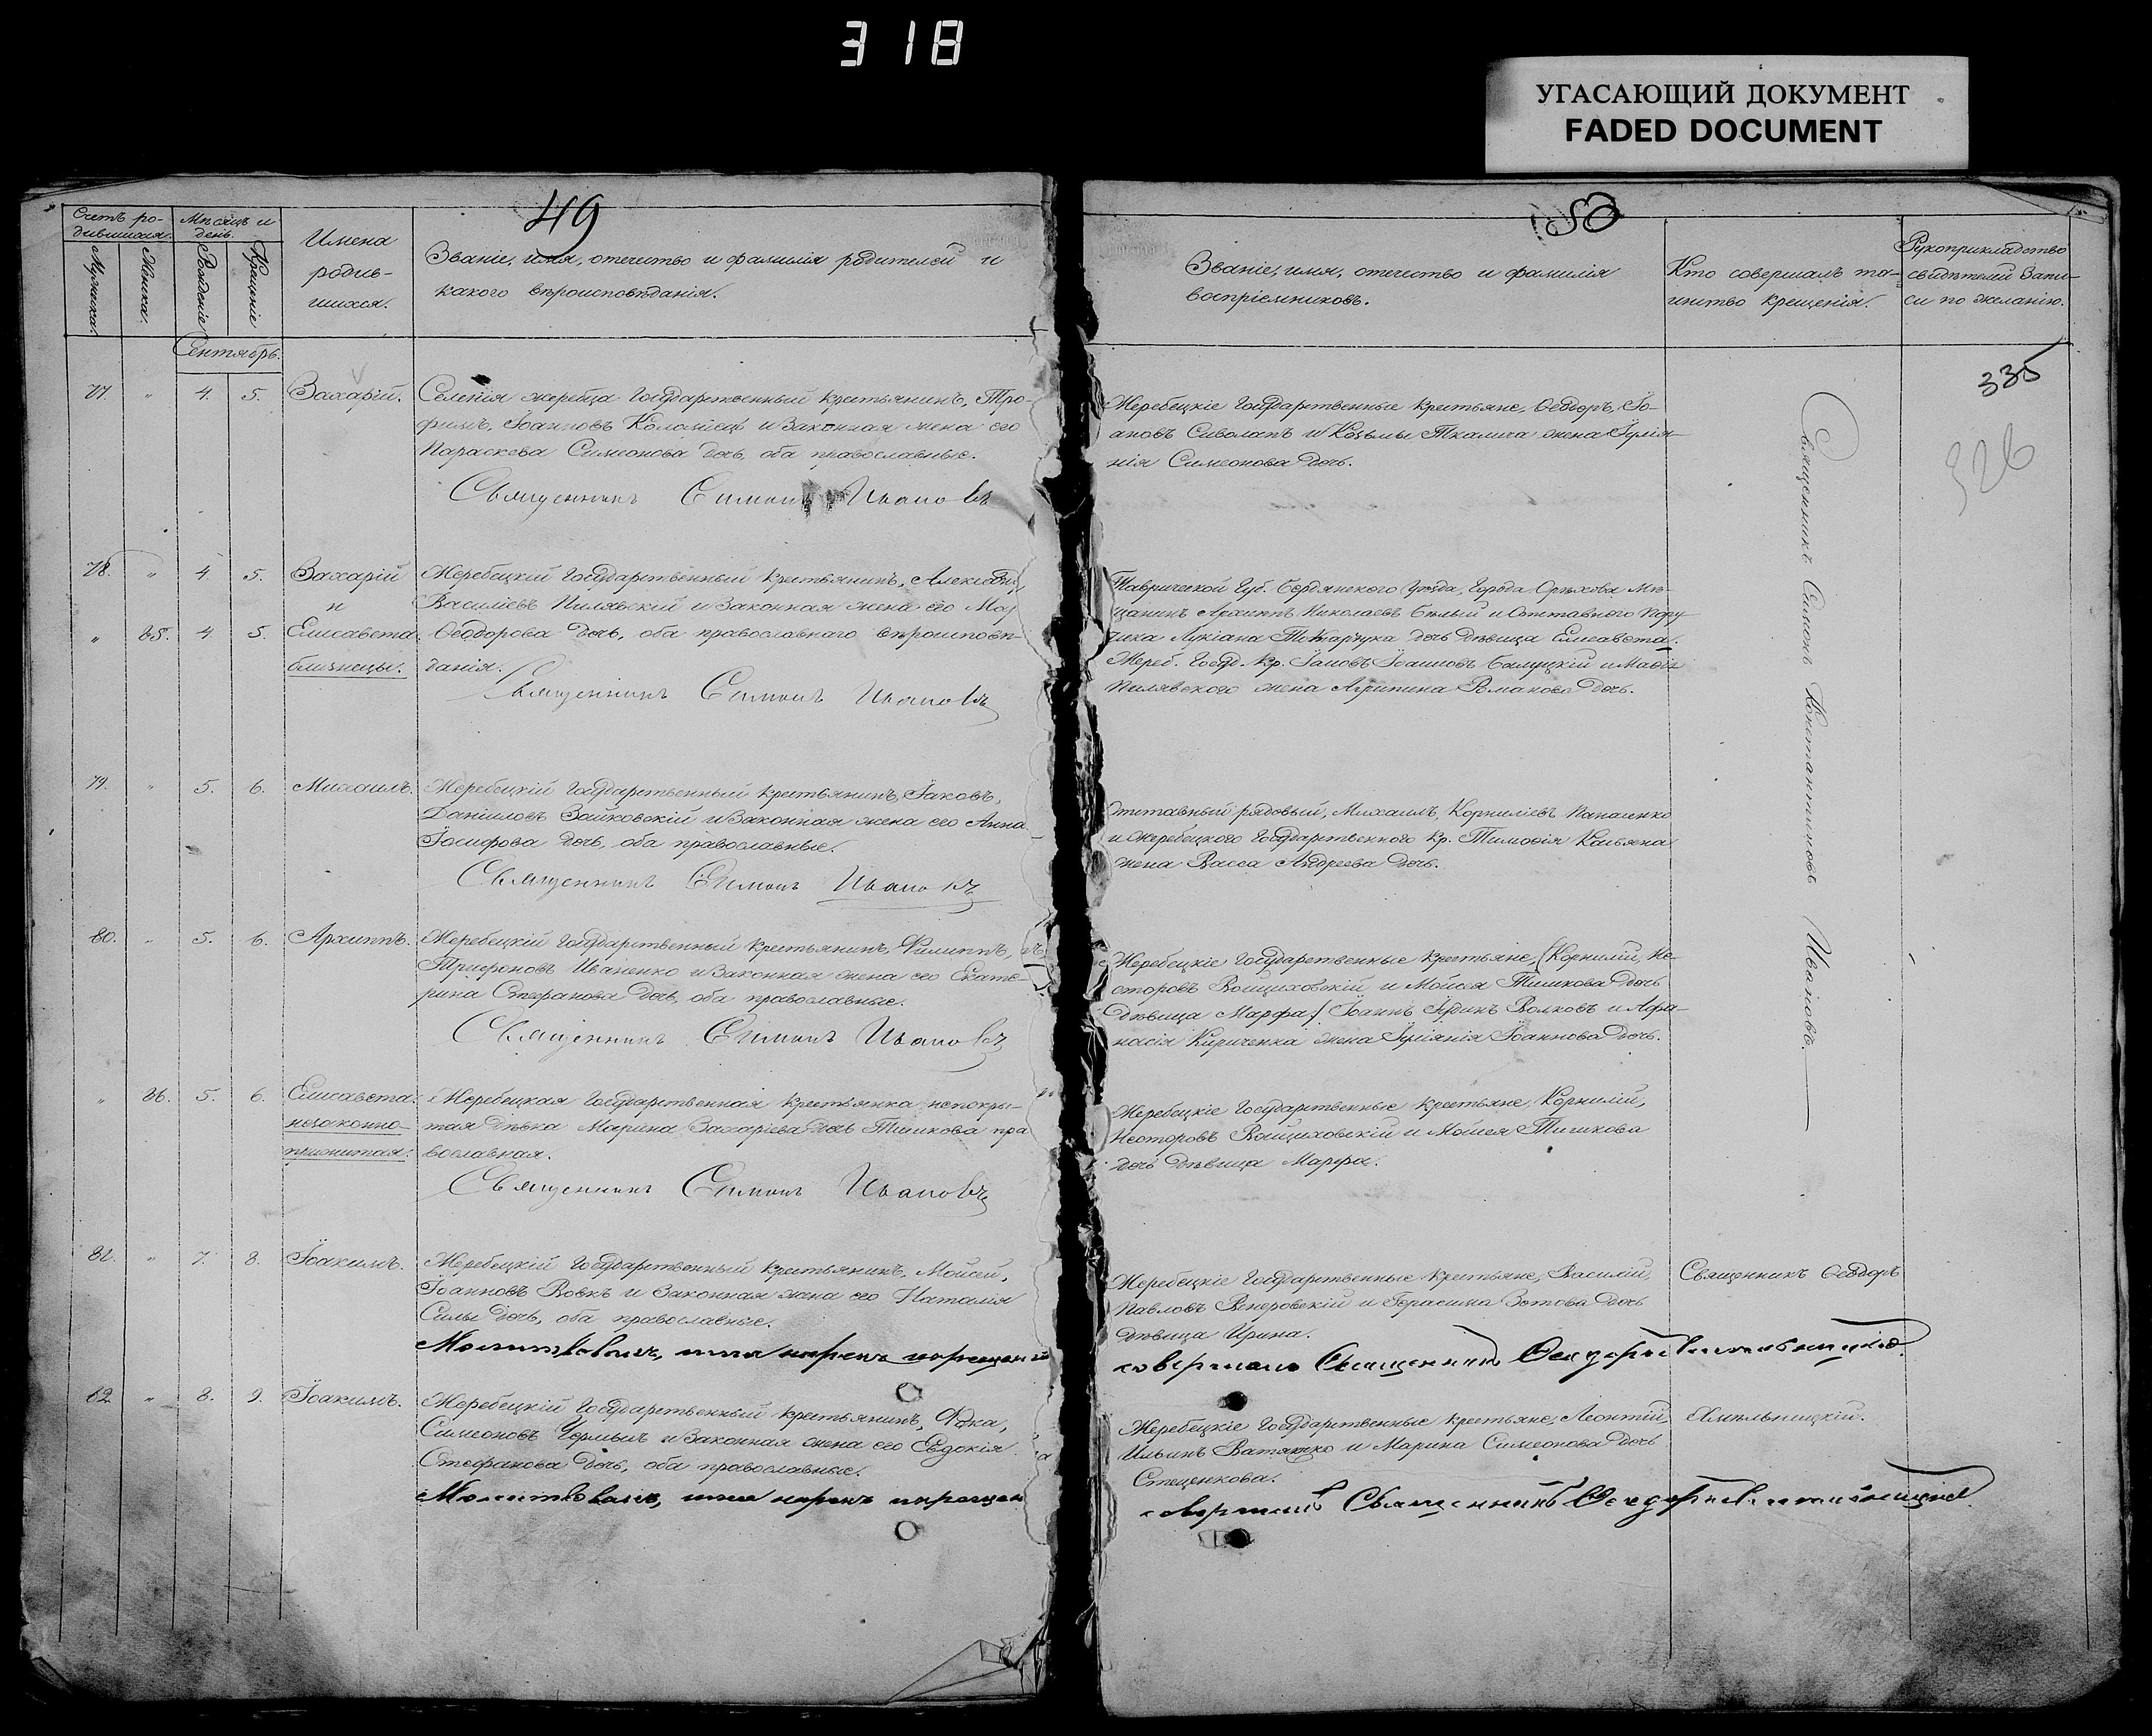 318
УГАСАЮЩИЙ ДОКУМЕНТ
FADED DOCUMENT
49
50
Счетъ ро-
дившихся.
Мужеска.
Женска.
Мѣсяцъ и
день.
Рожденіе
Крещеніе
Имена
родив-
шихся.
Званіе, имя, отчество и фамилія родителей и
какого вѣроисповѣданія.
Званіе, имя, отчество и фамилія
воспріемниковъ.
Кто совершалъ та-
инство крещенія.
Рукоприкладство
свидѣтелей запи-
си по желанію.
Сентябрь.
335
326
77. " 4. 5. Захарій.
Селенія Жеребца Государственный крестьянинъ, Тро-
фимъ, Іоанновъ Коломіецъ и законная жена его
Параскева Симеонова дочь, оба православные.
Священникъ Симонъ Ивановъ
Жеребецкіе Государственные крестьяне, Ѳеодоръ, Іо-
анновъ Сиволапъ и Козьмы Ткалича жена
Симеонова дочь.
Священникъ Симонъ Константиновъ Ивановъ.
78. " 4 5. Захарій
и
" 85. 4 5. Елисавета
близнецы.
Жеребецкій Государственный крестьянинъ,
Василіевъ Пилявскій и законная жена его
Ѳеодорова дочь, оба православнаго вѣроисповѣ-
данія.
Священникъ Симонъ Ивановъ
Таврической Губ. Бердянского уѣзда, города Орѣхова Мѣ-
щанинъ Архиппъ Николаевъ Бѣлый и отставного пору-
чика Лукіана дочь дѣвица Елисавета.
Жереб. Госуд. кр. Іаковъ Іоанновъ и
Пилявского жена Агрипина Романова дочь.
79. " 5. 6. Михаилъ.
Жеребецкій Государственный крестьянинъ, Іаковъ,
Даніиловъ Зайковскій и законная жена его Анна
Іосифова дочь, оба православные.
Священникъ Симонъ Ивановъ
Отставный рядовый, Михаилъ, Корниліевъ Панасенко
и жеребецкого Государственного кр. Тимоѳія Касьяна
жена Васса Андреева дочь.
80. " 5. 6. Архиппъ.
Жеребецкій Государственный крестьянинъ, Филиппъ,
Трифоновъ Иваненко и законная жена его Екате-
рина Стефанова дочь, оба православные.
Священникъ Симонъ Ивановъ
Жеребецкіе Государственные крестьяне, (Корнилій, Не-
сторовъ Войциховскій и Моисея Тишкова дочь
дѣвица Марфа) Іоаннъ Волковъ и Афа-
насія Кириченка жена Іоаннова дочь.
" 86. 5. 6. Елисавета.
незаконно-
прижитая.
Жеребецкая Государственная крестьянка непокры-
тая дѣвка Марина Захаріева дочь Тишкова пра-
вославная.
Священникъ Симонъ Ивановъ
Жеребецкіе Государственные крестьяне, Корнилій,
Несторовъ Войциховскій и Моисея Тишкова
дочь дѣвица Марфа.
81. " 7. 8. Іоакимъ.
Жеребецкій Государственный крестьянинъ, Моисей,
Іоанновъ Вовкъ и законная жена его Наталія
Силы дочь, оба православные.
Молитвовалъ, имя нарекъ
Жеребецкіе Государственные крестьяне, Василій,
Павловъ Венеровскій и Герасима Зотова дочь
дѣвица Ирина.
совершалъ Священникъ Ѳеодоръ
Священникъ Ѳеодоръ
82. " 8. 9. Іоакимъ.
Жеребецкій Государственный крестьянинъ, Ѳока,
Симеоновъ Чермыхъ и законная жена его Евдокія
Стефанова дочь, оба православные.
Молитвовалъ, имя нарекъ
Жеребецкіе Государственные крестьяне, Леонтій,
Ильинъ и Марина Симеонова дочь
Стеценкова.
совершалъ Священникъ Ѳеодоръ
Хмѣльницкій.